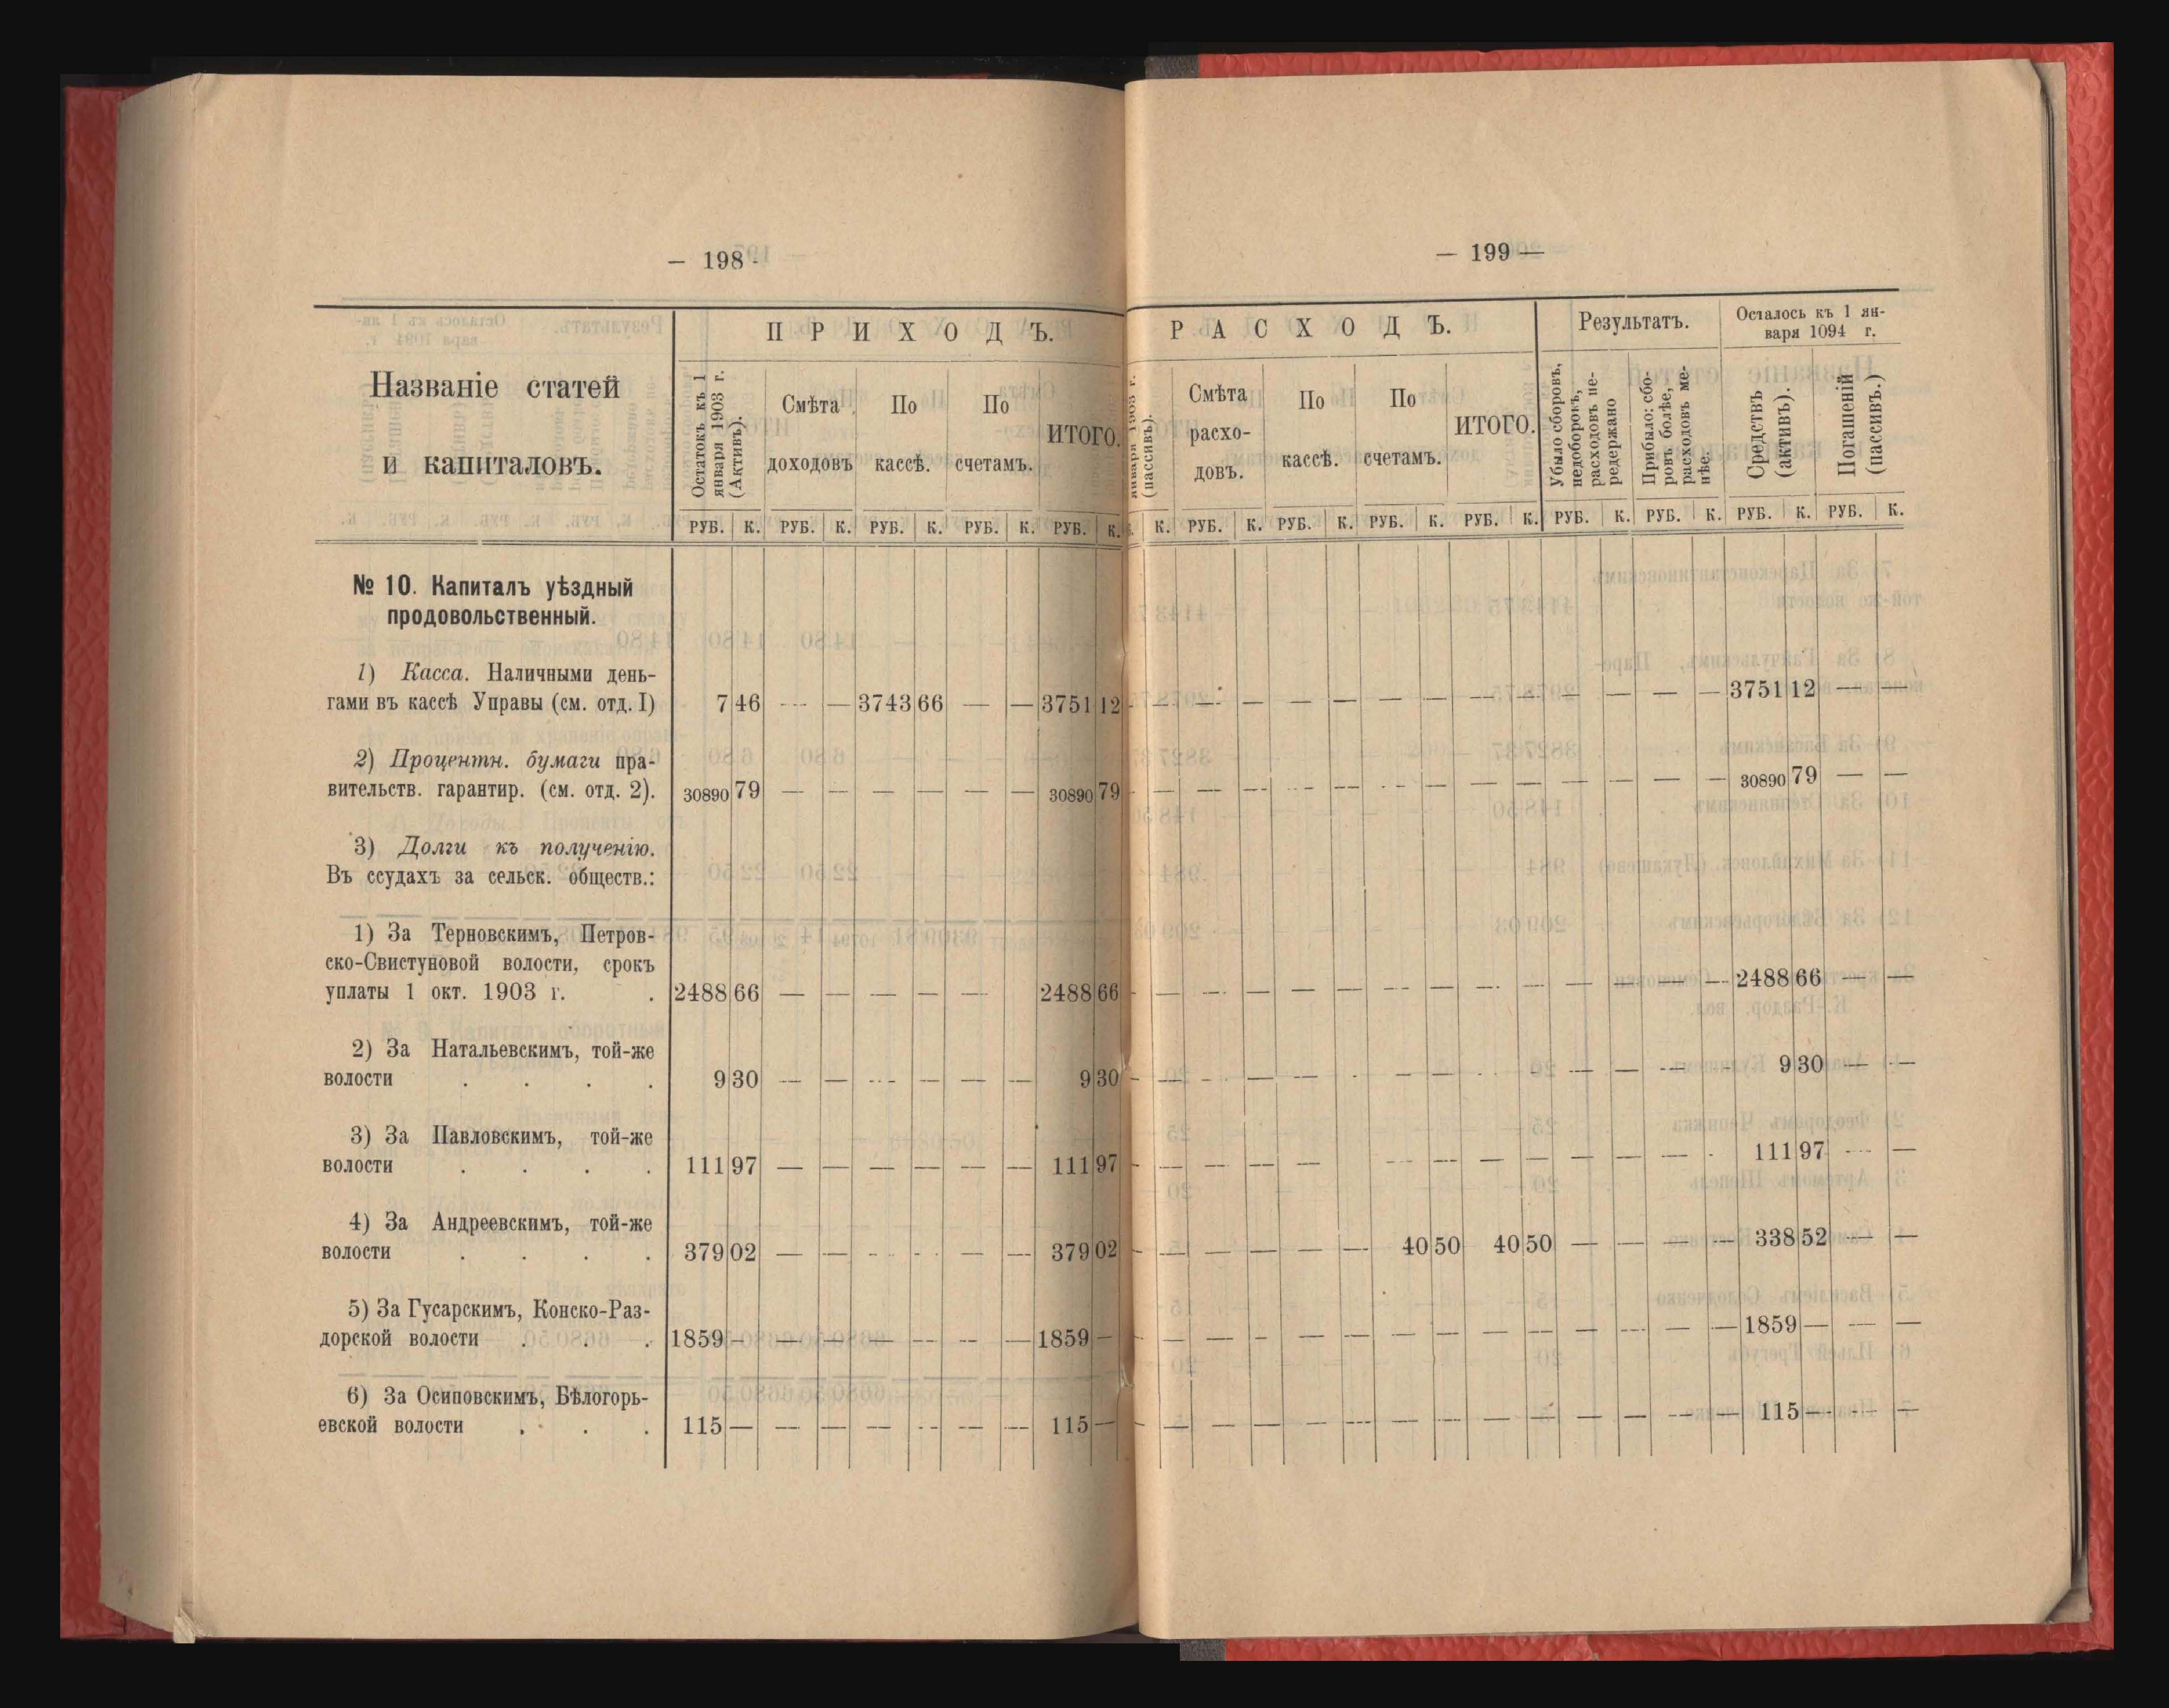 — 198 -
Названіе статей
и капиталовъ.
ПРИХОДЪ.
Остатокъ къ 1
января 1903 г.
(Активъ).
Смѣта
доходовъ
По
кассѣ.
По
счетамъ.
ИТОГО.
РУБ. К. РУБ. К. РУБ. К. РУБ. К. РУБ. К.
№ 10. Капиталъ уѣздный
продовольственный.
1) Касса. Наличными день-
гами въ кассѣ Управы (см. отд. I) 7 46 — — 3743 66 — — 3751 12
2) Процентн. бумаги пра-
вительств. гарантир. (см. отд. 2). 30890 79 — — — — — — 30890 79
3) Долги къ полученію.
Въ ссудахъ за сельск. обществ.:
1) За Терновскимъ, Петров-
ско-Свистуновой волости, срокъ
уплаты 1 окт. 1903 г. . 2488 66 — — — — — 2488 66
2) За Натальевскимъ, той-же
волости . . . . 9 30 — — — — — — 9 30
3) За Павловскимъ, той-же
волости . . . . 111 97 — — — — — — 111 97
4) За Андреевскимъ, той-же
волости . . . . 379 02 — — — — — — 379 02
5) За Гусарскимъ, Конско-Раз-
дорской волости . . . 1859 — — — — — — — 1859 —
6) За Осиповскимъ, Бѣлогорь-
евской волости . . . 115 — — — — — — — 115 —
— 199 —
РАСХОДЪ.
января 1903 г.
(пассивъ).
Смѣта
расхо-
довъ.
По
кассѣ.
По
счетамъ.
ИТОГО.
Результатъ.
Убыло сборовъ,
недоборокъ,
расходовъ пе-
редержано
Прибыло: сбо-
ровъ болѣе,
расходовъ ме-
нѣе.
Осталось къ 1 ян-
варя 1094 г.
Средствъ
(активъ).
Погашеній
(пассивъ.)
К. РУБ. К. РУБ. К. РУБ. К. РУБ. К. РУБ. К. РУБ. К. РУБ. К. РУБ. К.
— — — — — — — — — — — — — — 3751 12 — —
— — — — — — — — — — — — — — 30890 79 — —
— — — — — — — — — — — — — 2488 66 — —
— — — — — — — — — — — — 9 30 — —
— — — — — — — — — — — — - 111 97 — —
— — — — — — 40 50 40 50 — — — — 338 52 — —
— — — — — — — — — — — — — — 1859 — — —
— — — — — — — — — — — — — — 115 — — —